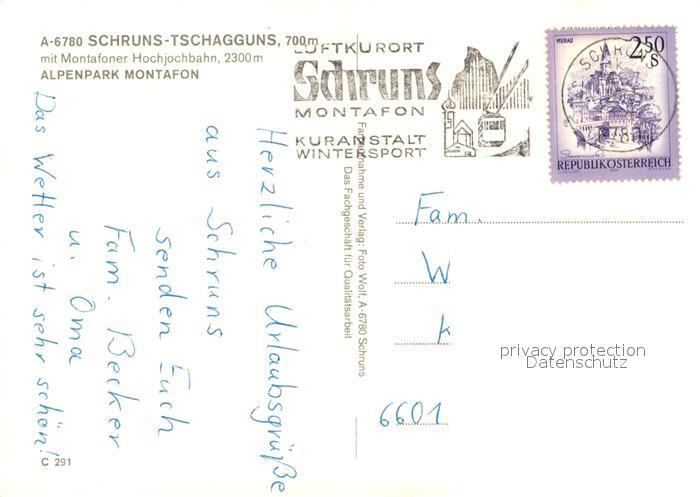 A-6780 SCHRUNS-TSCHAGGUNS, 700m
mit Montafoner Hochjochbahn, 2300 m
ALPENPARK MONTAFON
LUFTKURORT
Schruns
MONTAFON
KURANSTALT
WINTERSPORT
MURAU
2.50
S
REPUBLIK ÖSTERREICH
SCHRUNS
6780
Herzliche Urlaubsgrüße
aus Schruns
senden Euch
Fam. Becker
u. Oma
Das Wetter ist sehr schön!
Farbaufnahme und Verlag: Foto Wolf, A-6780 Schruns
Das Fachgeschäft für Qualitätsarbeit
Fam.
W
K
6601
privacy protection
Datenschutz
C 291